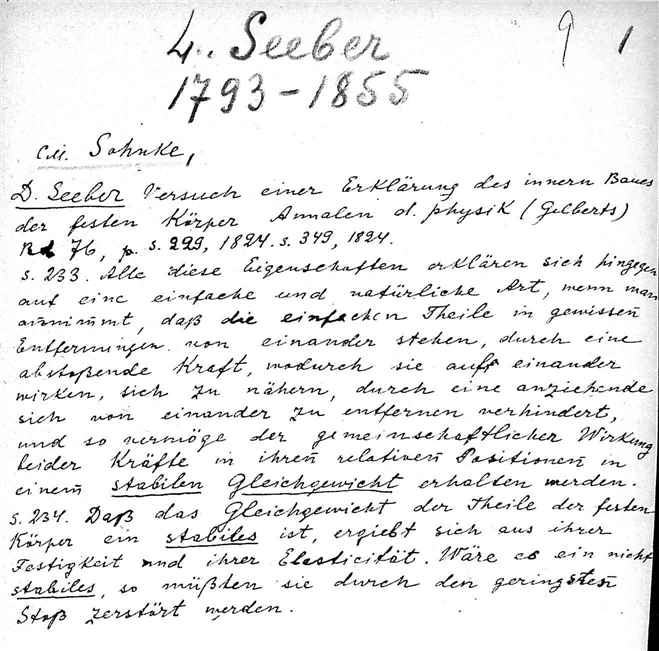 9 1
4. Seeber
1793-1855
см. Sohnke,
D. Seeber Versuch einer Erklärung des innern Baues
der festen Körper Annalen d. physik (Gilberts)
Bd 76, p. s. 229, 1824. s. 349, 1824.
s. 233. Alle diese Eigenschaften erklären sich hingegen
auf eine einfache und natürliche Art, wenn man
annimmt, daß die einfachen Theile in gewissen
Entfernungen von einander stehen, durch eine
abstoßende Kraft, wodurch sie auf einander
wirken, sich zu nähern, durch eine anziehende
sich von einander zu entfernen verhindert,
und so vermöge der gemeinschaftlicher Wirkung
beider Kräfte in ihren relativen Positionen in
einem stabilen Gleichgewicht erhalten werden.
s. 234. Daß das Gleichgewicht der Theile der festen
Körper ein stabiles ist, ergiebt sich aus ihrer
Festigkeit und ihrer Elasticität. Wäre es ein nicht
stabiles, so müßten sie durch den geringsten
Stoß zerstört werden.